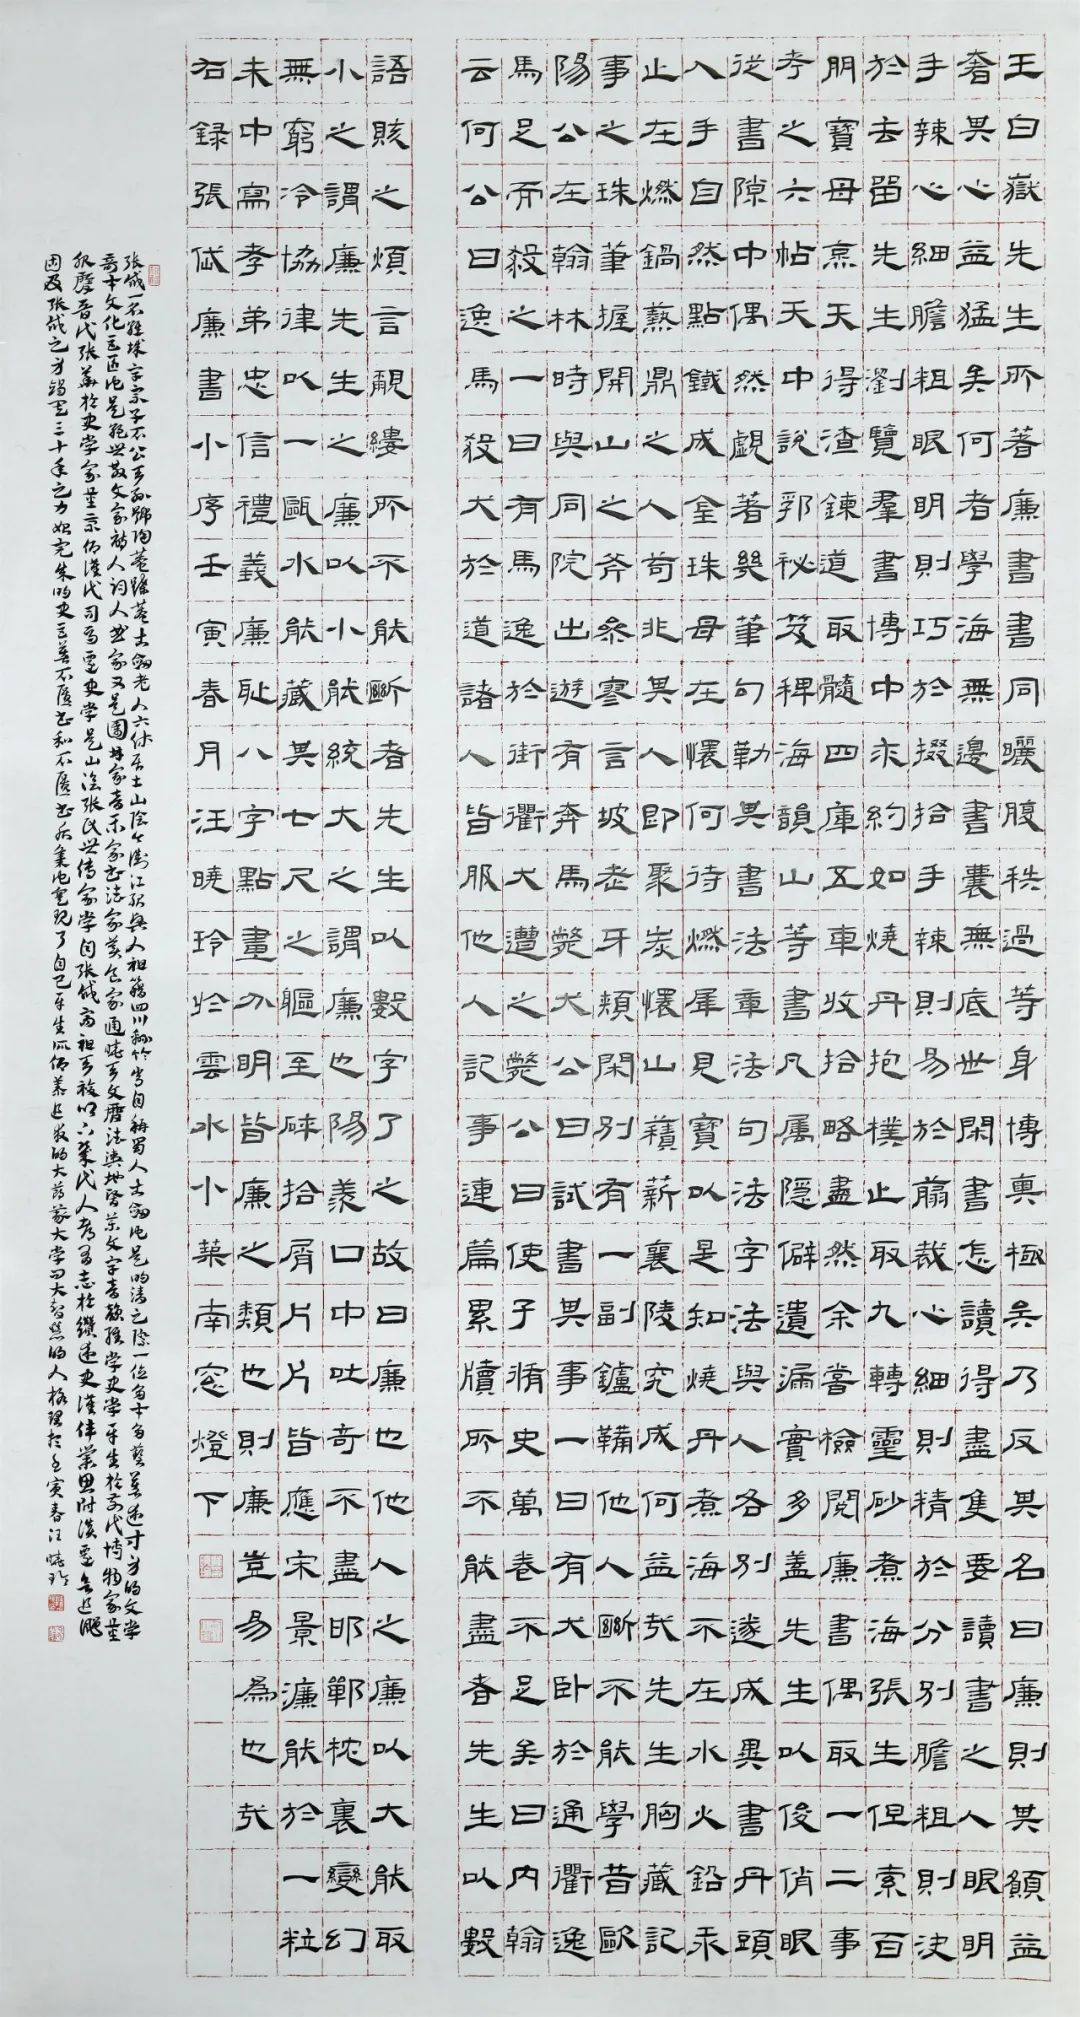 王白嶽先生所著廉書書同曬腹秩過等身博奧極矣乃反其名曰廉則其願益
奢其心益猛矣何者學海無邊書囊無底世閒書怎讀得盡隻要讀書之人眼明
手辣心細膽粗眼明則巧於掇拾手辣則易於翦裁心細則精於分別膽粗則決
於去留先生瀏覽羣書博中求約如燒丹抱樸止取九轉靈砂煮海張生但索百
朋寶母烹天得渣鍊道取髓四庫五車收拾略盡然余嘗檢閱廉書偶取一二事
考之六帖天中說郛秘笈稗海韻山等書凡属隱僻遺漏實多盖先生以後俏眼
從書隙中偶然覷著幾筆句勒其書法章法句法字法與人各別遂成異書丹頭
入手自然點鐵成金珠母在懷何待燃犀見寶以是知燒丹煮海不在水火鉛汞
止在燃鍋爇鼎之人苟非其人即聚炭懷山藉薪襄陵究成何益㢤先生胸藏記
事之珠筆握開山之斧參寥言坡老牙頰閑別有一副鑪鞴他人斷不能學昔歐
陽公在翰林時與同院出遊有奔馬斃犬公曰試書其事一曰有犬臥於通衢逸
馬足而殺之一曰有馬逸於街衢犬遭之斃公曰使子脩史萬卷不足矣曰內翰
云何公曰逸馬殺犬於道諸人皆服他人記事連篇累牘所不能盡者先生以數
語賅之煩言覼縷所不能斷者先生以數字了之故曰廉也他人之廉以大能取
小之謂廉先生之廉以小能統大之謂廉也陽羨口中吐奇不盡耶鄲枕裏變幻
無窮冷協律以一甌水能藏其七尺之軀至碎拾屑片片皆應宋景濂能於一粒
未中寫孝弟忠信禮義廉恥八字點畫分明皆廉之類也則廉豈易為也㢤
右錄張岱廉書小序壬寅春月汪曉玲於雲水小築南窓燈下
張岱一名維城字宗子石公天孫號陶菴蝶菴古劍老人六休居士山陰今浙江紹興人祖籍四川綿竹常自稱蜀人古劍他是明清之際一位多才多藝著述等身的文學
奇才文化巨匠他是絕世散文家詩人詞人曲家又是園林家音樂家書法家美食家通曉天文曆法輿地醫藥文字音韻經學史學平生於前代博物家
晉代張華於史學家仰漢代司馬遷史學是山陰張氏世傳家學自張岱高祖天復以下幾代人都有志於繼述史漢偉業
固及張岱之身竭盡三十年之力始完成明史巨著石匱書和石匱書後集他實現了自己平生所仰慕追攀的大前輩大學問大智慧的人格理想壬寅春汪曉玲